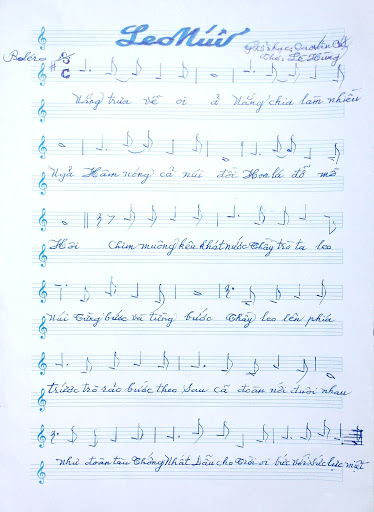 Leo Núi
Boléro
Phổ nhạc: Cao Văn
Thơ: Lê Hùng
Nắng trưa về oi ả Nắng chia làm nhiều
Ngả Hâm nóng cả núi đồi Hoa lá đổ mồ
Hôi Chim muông kêu khát nước Thầy trò ta leo
Núi Từng bước và từng bước Thầy leo lên phía
trước trò rảo bước theo sau Cả đoàn nối đuôi nhau
Như đoàn tàu Thống Nhất Dẫu cho Trời oi bức Với sức lực miệt